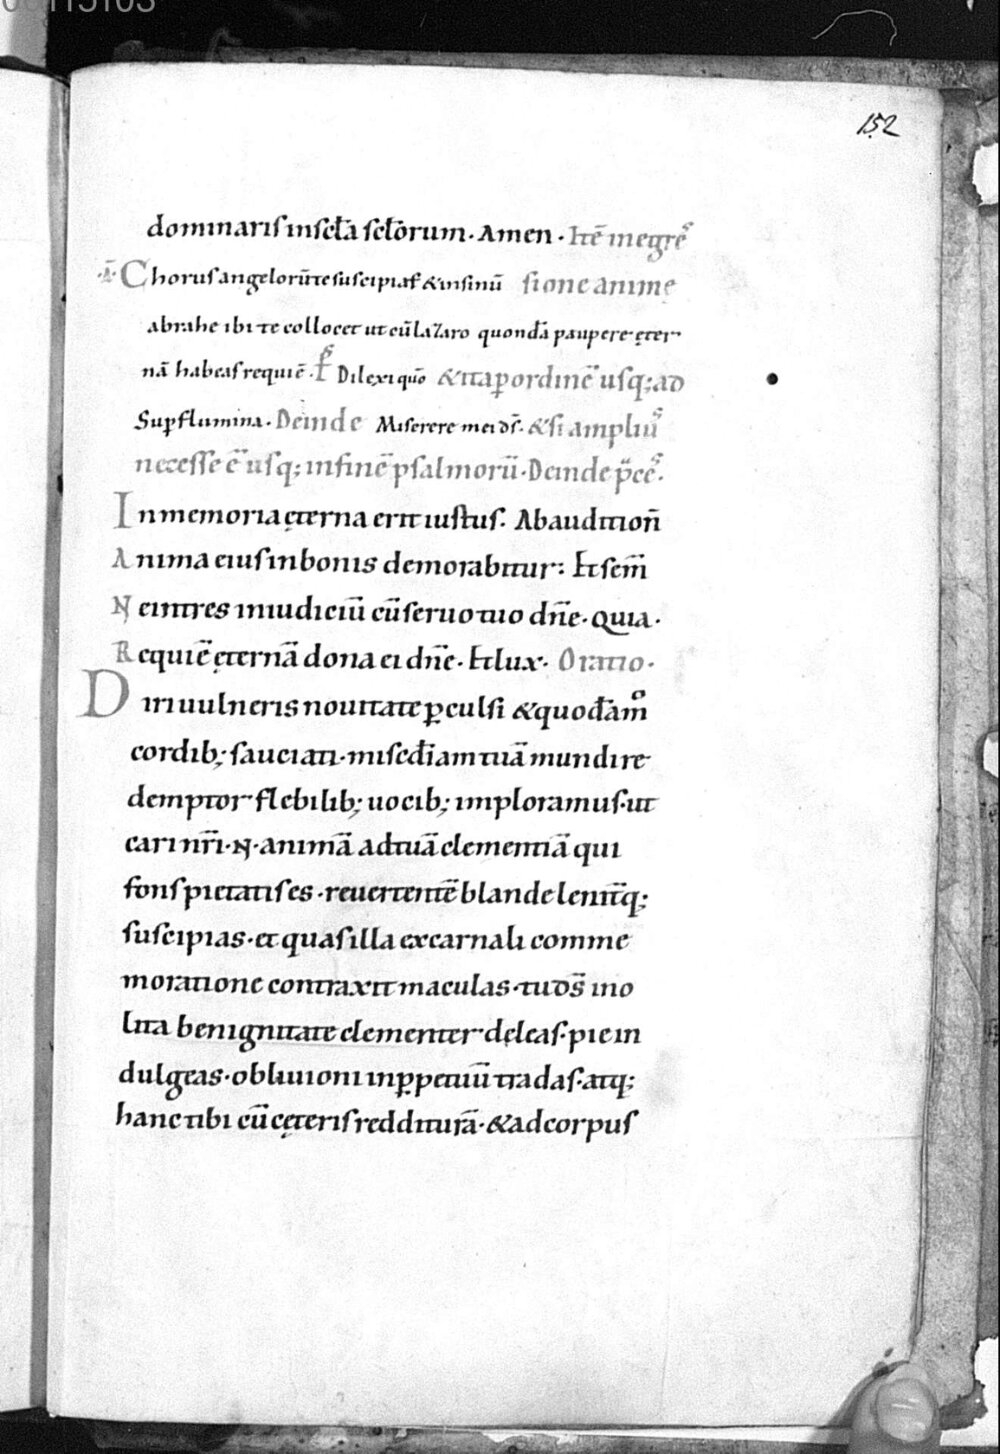 152
dominaris in scl̄a scl̄orum. Amen. Itē in egrē
.Ā. Chorus angelorū te suscipiat & in sinū sione anime
abrahe ibi te collocet ut cū lazaro quondā paupere ęter
nā habeas requiē. Ps Dilexi quō & ita ꝑ ordinē usq; ad
Suꝑ flumina. Deinde Miserere mei ds̄. & si ampliꝰ
necesse ē usq; in finē psalmorū. Deinde p̄ces.
In memoria ęterna erit iustus. Ab auditioñ
Anima eius in bonis demorabitur: Et sem̄
Ne intres in iudiciū cū seruo tuo dn̄e. Quia.
Requiē ęternā dona ei dn̄e. Et lux. Oratio.
Diri uulneris nouitate ꝑculsi & quodām͛o
cordib; sauciati. misc̄diam tuā mundi re
demptor flebilib; uocib; imploramus. ut
cari nr̄i. N. animā ad tuā clementiā qui
fons pietatis es. reuertentē blande lenit̄q;
suscipias. et quas illa ex carnali comme
moratione contraxit maculas. tu ds̄ ino
lita benignitate clementer dęleas. pie in
dulgeas. obliuioni in ꝑpetuū tradas. atq;
hanc tibi cū cęteris redditurā. & ad corpus